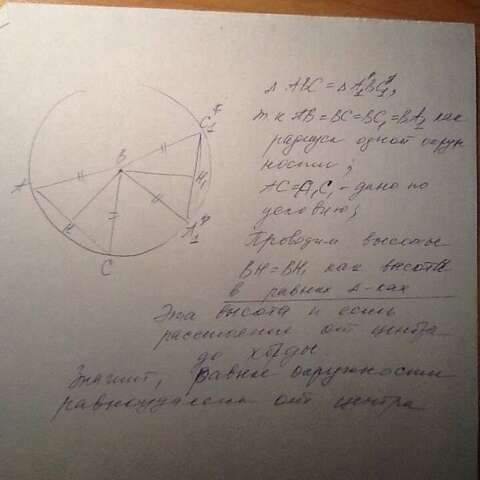 Δ ABC = Δ A₁BC₁,
т.к AB = BC = BC₁ = BA₁ как
радиусы одной окруж
ности;
AC = A₁C₁ - дано по
условию;
Проводим высоты
BH = BH₁ как высоты
в равных Δ-ках
Эта высота и есть
расстояние от центра
до хорды.
Значит, равные окружности
равноудалены от центра
C₁
B
A
H₁
H
A₁
C